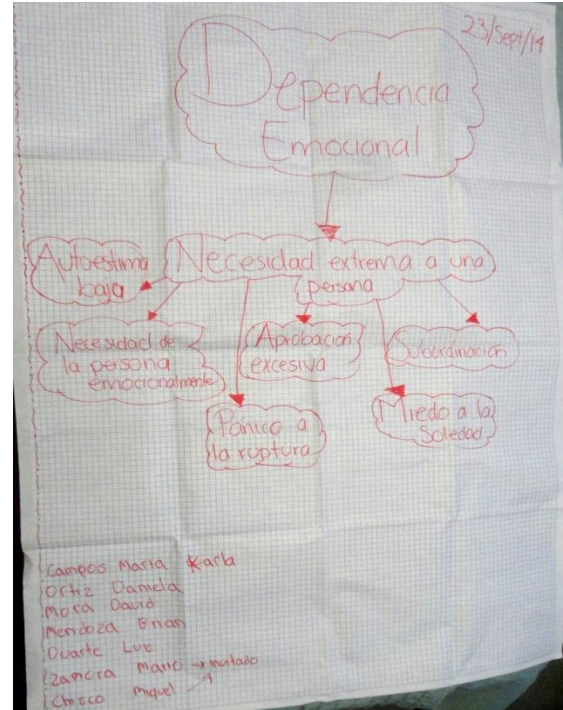 23/Sept/14
Dependencia
Emocional
Necesidad extrema a una
persona
Autoestima
baja
Necesidad de
la persona
emocionalmente
Aprobación
excesiva
Subordinación
Pánico a
la ruptura
Miedo a la
Soledad
Campos Maria Karla
Ortiz Daniela
Mora David
Mendoza Brian
Duarte Luz
Zamora Mario → invitado
Chisco Miguel